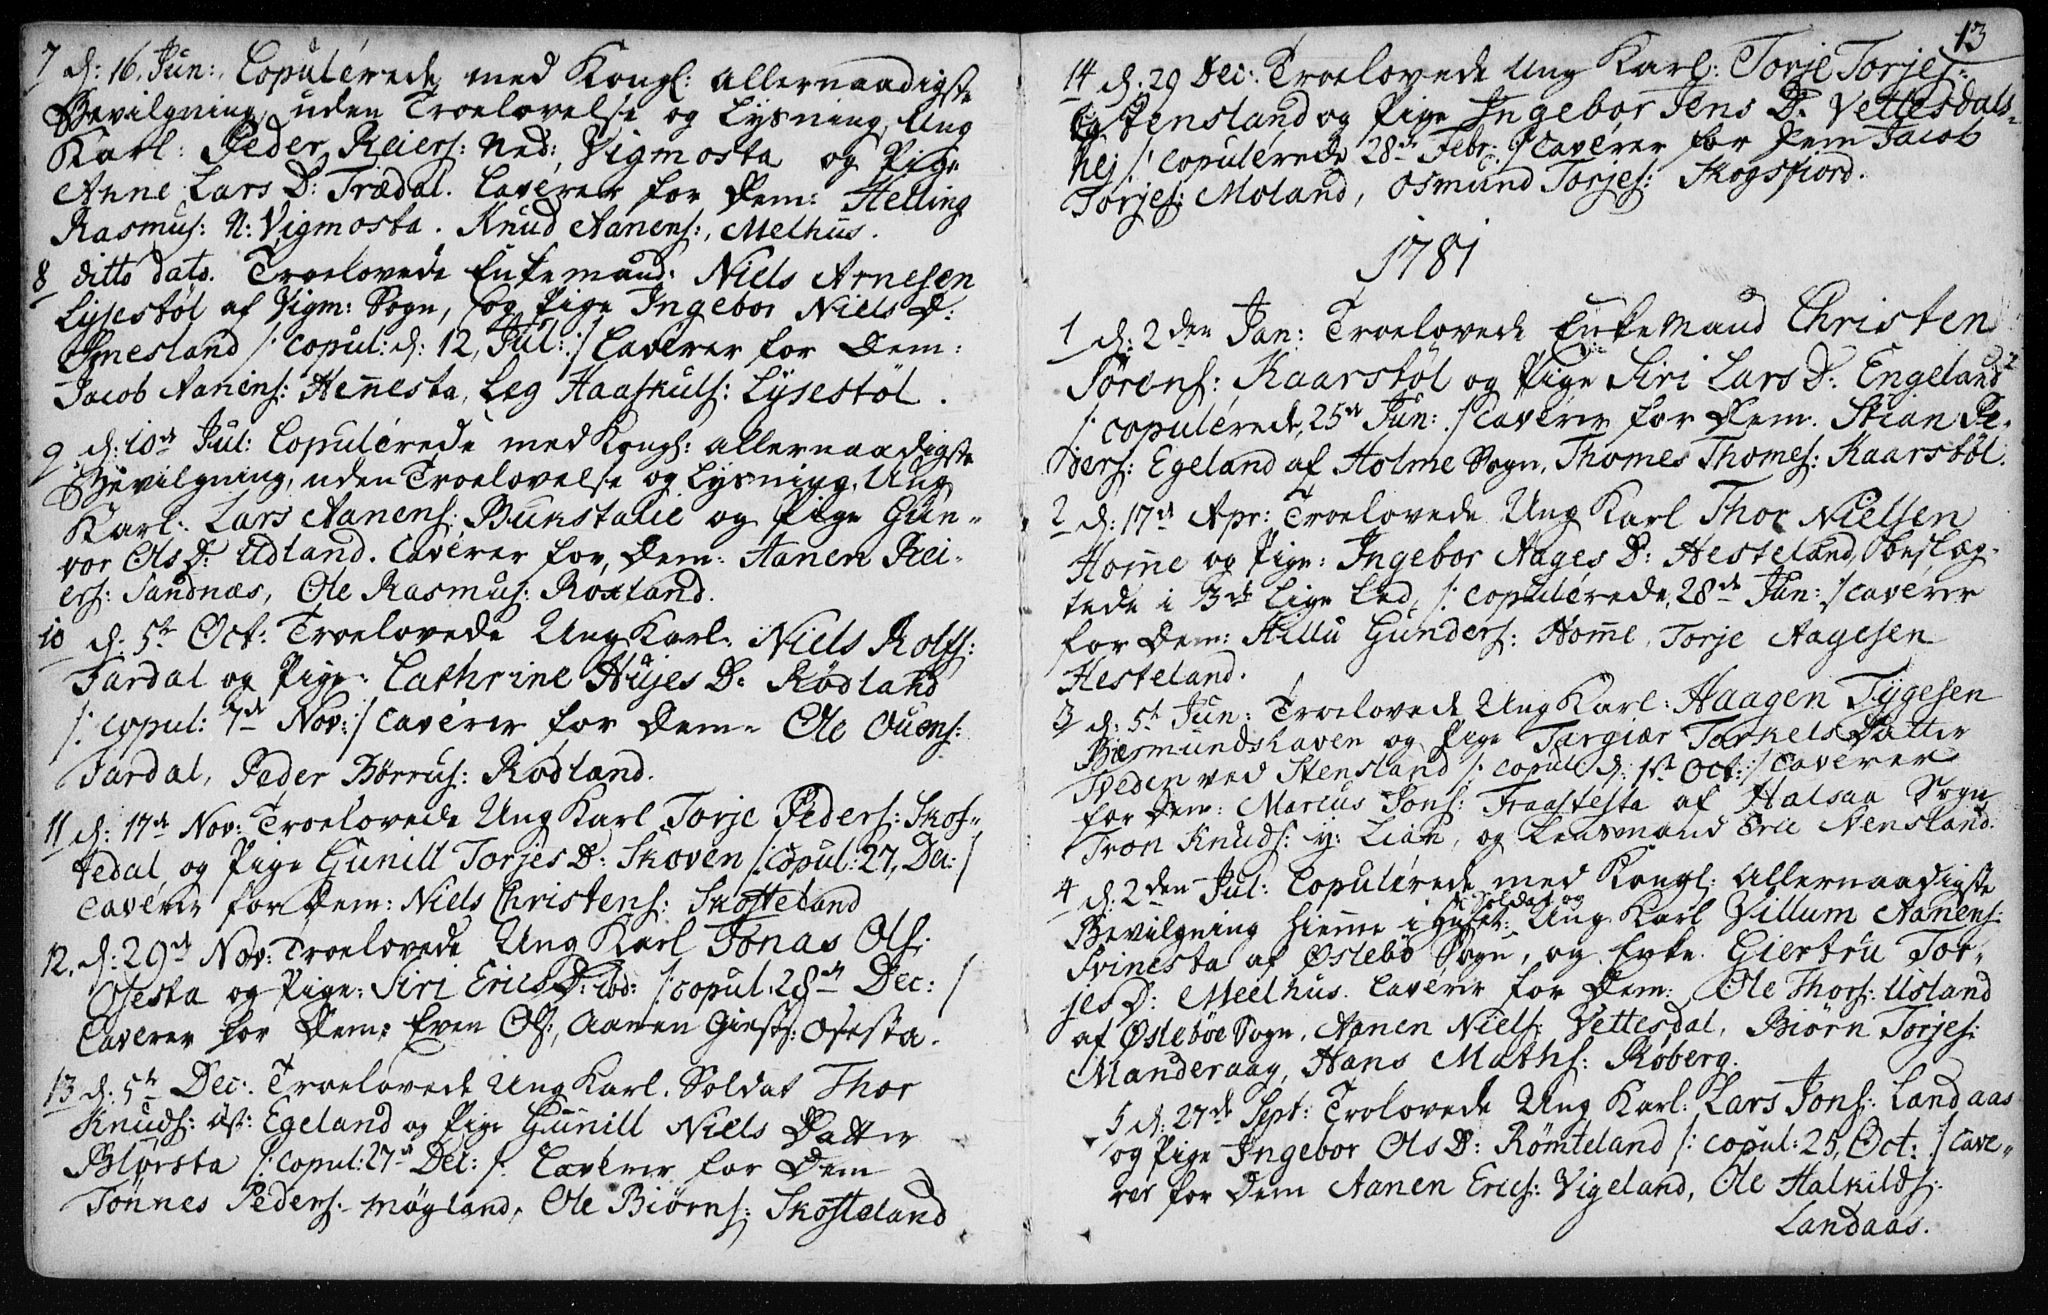 7 d: 16. Jun: Copulerede med Kongl: allernaadigste
Bevilgning, uden Troelovelse og Lysning, Ung
Karl: Peder Reiers: Ned: Vigmosta og Pige
Anne Lars D: Trædal. Caverer for Dem: Helling
Rasmus: N: Vigmosta. Knud Aanens:, Melhus.
8 ditto dato. Troelovede Enkemand: Niels Arnesen
Lysestøl af Vigm: Sogn, og Pige Ingebor Niels D:
Omesland /: copul: d: 12, Jul: :/ Caverer for Dem:
Jacob Aanens: Hennesta, Leg Haaskuls: Lysestøl.
9 d: 10de Jul: Copulerede med Kongl: allernaadigste
Bevilgning, uden Troelovelse og Lysning, Ung
Karl: Lars Aanens: Bukstalie og Pige Gun-
vor Ols D: Udland. Caverer for Dem: Aanen Rei-
ers: Sandnæs, Ole Rasmus: Roxland.
10 d: 5te Oct: Troelovede Ung Karl: Niels Rolfs:
Fardal og Pige: Cathrine Hujes D: Rødland
/: copul: 7de Nov: :/ caverer for Dem: Ole Ouens:
Fardal, Peder Børrus: Rødland.
11 d: 17de Nov: Troelovede Ung Karl Torje Peders: Skof-
tedal, og Pige Gunill Torjes D: Skoven /: copul: 27, Dec: /
Caverer for Dem: Niels Christens: Skofteland
12. d: 29de Nov: Troelovede Ung Karl Jonas Ols:
Osesta og Pige: Siri Erics D: ibd: /: copul: 28de Dec: /
Caverer for Dem: Even Ols:, Aanen Giests: Osesta.
13 d: 5te Dec: Troelovede Ung Karl. Soldat Thor
Knuds: Øst: Egeland og Pige Gunill Niels Datter
Blørsta /: copul: 27de Dec: /: Caverer for Dem
Tønnes Peders: Møgland, Ole Biørns: Skofteland
13
14 d: 29 Dec: Troelovede Ung Karl: Torje Torjes:
Stensland og Pige Ingebor Jens D: Vettesdals-
hej /: copulerede 28de Febr: :/ Caverer for Dem Jacob
Torjes: Moland, Osmund Torjes: Skogsfiord.
1781
1 d: 2den Jan: Troelovede Enkemand Christen
Sørens: Kaarstøl og Pige Siri Lars D: Engeland
/: copulerede, 25de Jun: :/ Caverer for Dem. Stian Pe-
ders: Egeland af Holme Sogn, Thomes Thomes: Kaarstøl.
2 d: 17de Apr: Troelovede Ung Karl Thor Nielsen
Homme og Pige: Ingebor Aages D: Hesteland, beslæg-
tede i 3die Lige Led, /: copulerede, 28de Jun: :/ caverer
for Dem: Stillu Gunders: Homme, Torje Aagesen
Hesteland.
3 d: 5te Jun: Troelovede Ung Karl: Haagen Tygesen
Besmundshaven og Pige Targiær Torkels Datter
Tveden ved Stensland /: copul d: 1ste Oct: :/ Caverer
for Dem: Marcus Jons: Traastesta af Halsaa Sogn
Tron Knuds: y: Lian, og Lensmand Eric Nensland.
4 d: 2den Jul: Copulerede med Kongl: Allernaadigste
Bevilgning hiemme i Huset: Soldat og Ung Karl Villum Aanens:
Svinesta af Øslebø Sogn, og Enke Giertru Tor-
jes D: Meelhus. Caverer for Dem: Ole Thors: Usland
af Øslebøe Sogn, Aanen Niels: Vettesdal, Biørn Torjes:
Manderaag, Hans Maths: Røberg.
5 d: 27de Sept: Trolovede Ung Karl: Lars Jons: Landaas
og Pige Ingebor Ols D: Rømteland /: copul: 25, Oct: :/ Cave-
rer for Dem Aanen Erics: Vigeland, Ole Halkilds:
Landaas.